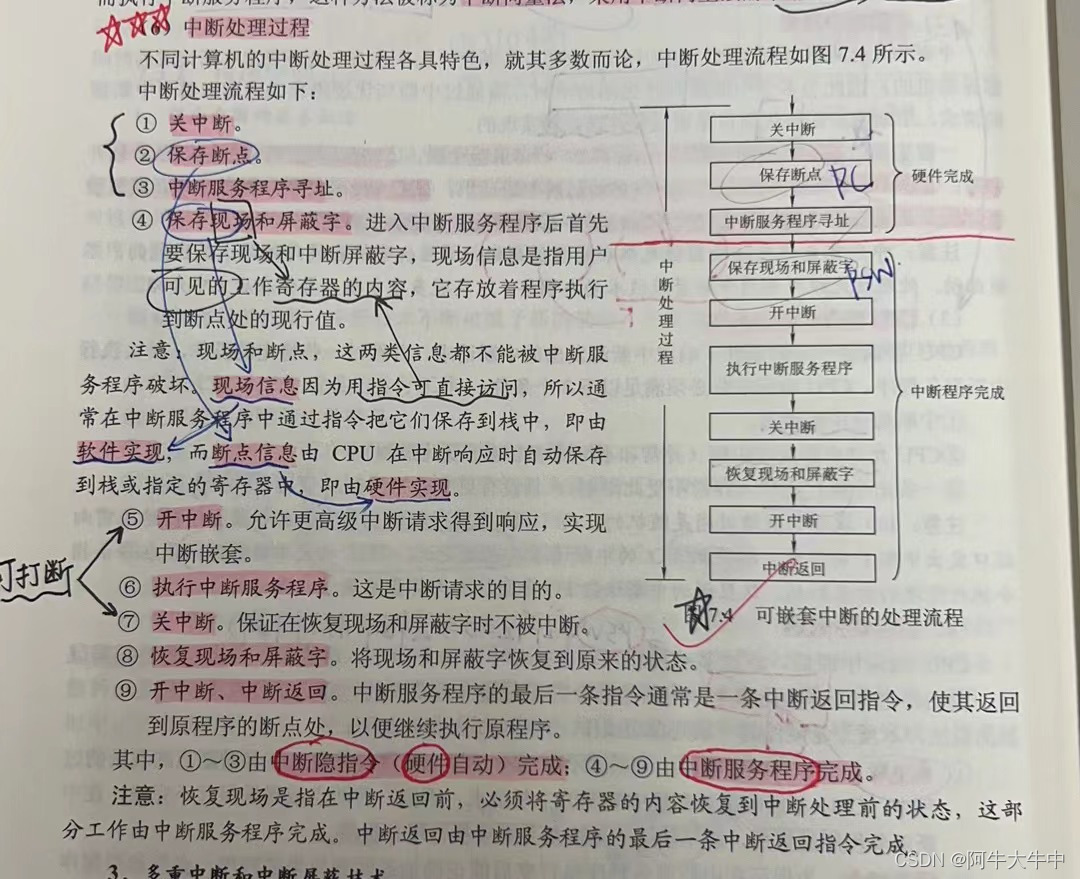 中断处理过程
不同计算机的中断处理过程各具特色，就其多数而论，中断处理流程如图 7.4 所示。
中断处理流程如下：
① 关中断。
② 保存断点。
③ 中断服务程序寻址。
④ 保存现场和屏蔽字。进入中断服务程序后首先
要保存现场和中断屏蔽字，现场信息是指用户
可见的工作寄存器的内容，它存放着程序执行
到断点处的现行值。
注意：现场和断点，这两类信息都不能被中断服
务程序破坏。现场信息因为用指令可直接访问，所以通
常在中断服务程序中通过指令把它们保存到栈中，即由
软件实现；而断点信息由 CPU 在中断响应时自动保存
到栈或指定的寄存器中，即由硬件实现。
⑤ 开中断。允许更高级中断请求得到响应，实现
中断嵌套。
可打断
⑥ 执行中断服务程序。这是中断请求的目的。
⑦ 关中断。保证在恢复现场和屏蔽字时不被中断。
⑧ 恢复现场和屏蔽字。将现场和屏蔽字恢复到原来的状态。
⑨ 开中断、中断返回。中断服务程序的最后一条指令通常是一条中断返回指令，使其返回
到原程序的断点处，以便继续执行原程序。
其中，①～③由中断隐指令（硬件自动）完成；④～⑨由中断服务程序完成。
注意：恢复现场是指在中断返回前，必须将寄存器的内容恢复到中断处理前的状态，这部
分工作由中断服务程序完成。中断返回由中断服务程序的最后一条中断返回指令完成。
3．多重中断和中断屏蔽技术
关中断
保存断点
PC
硬件完成
中断服务程序寻址
保存现场和屏蔽字
PSW
开中断
中断处理过程
执行中断服务程序
中断程序完成
关中断
恢复现场和屏蔽字
开中断
中断返回
7.4 可嵌套中断的处理流程
CSDN @阿牛大牛中